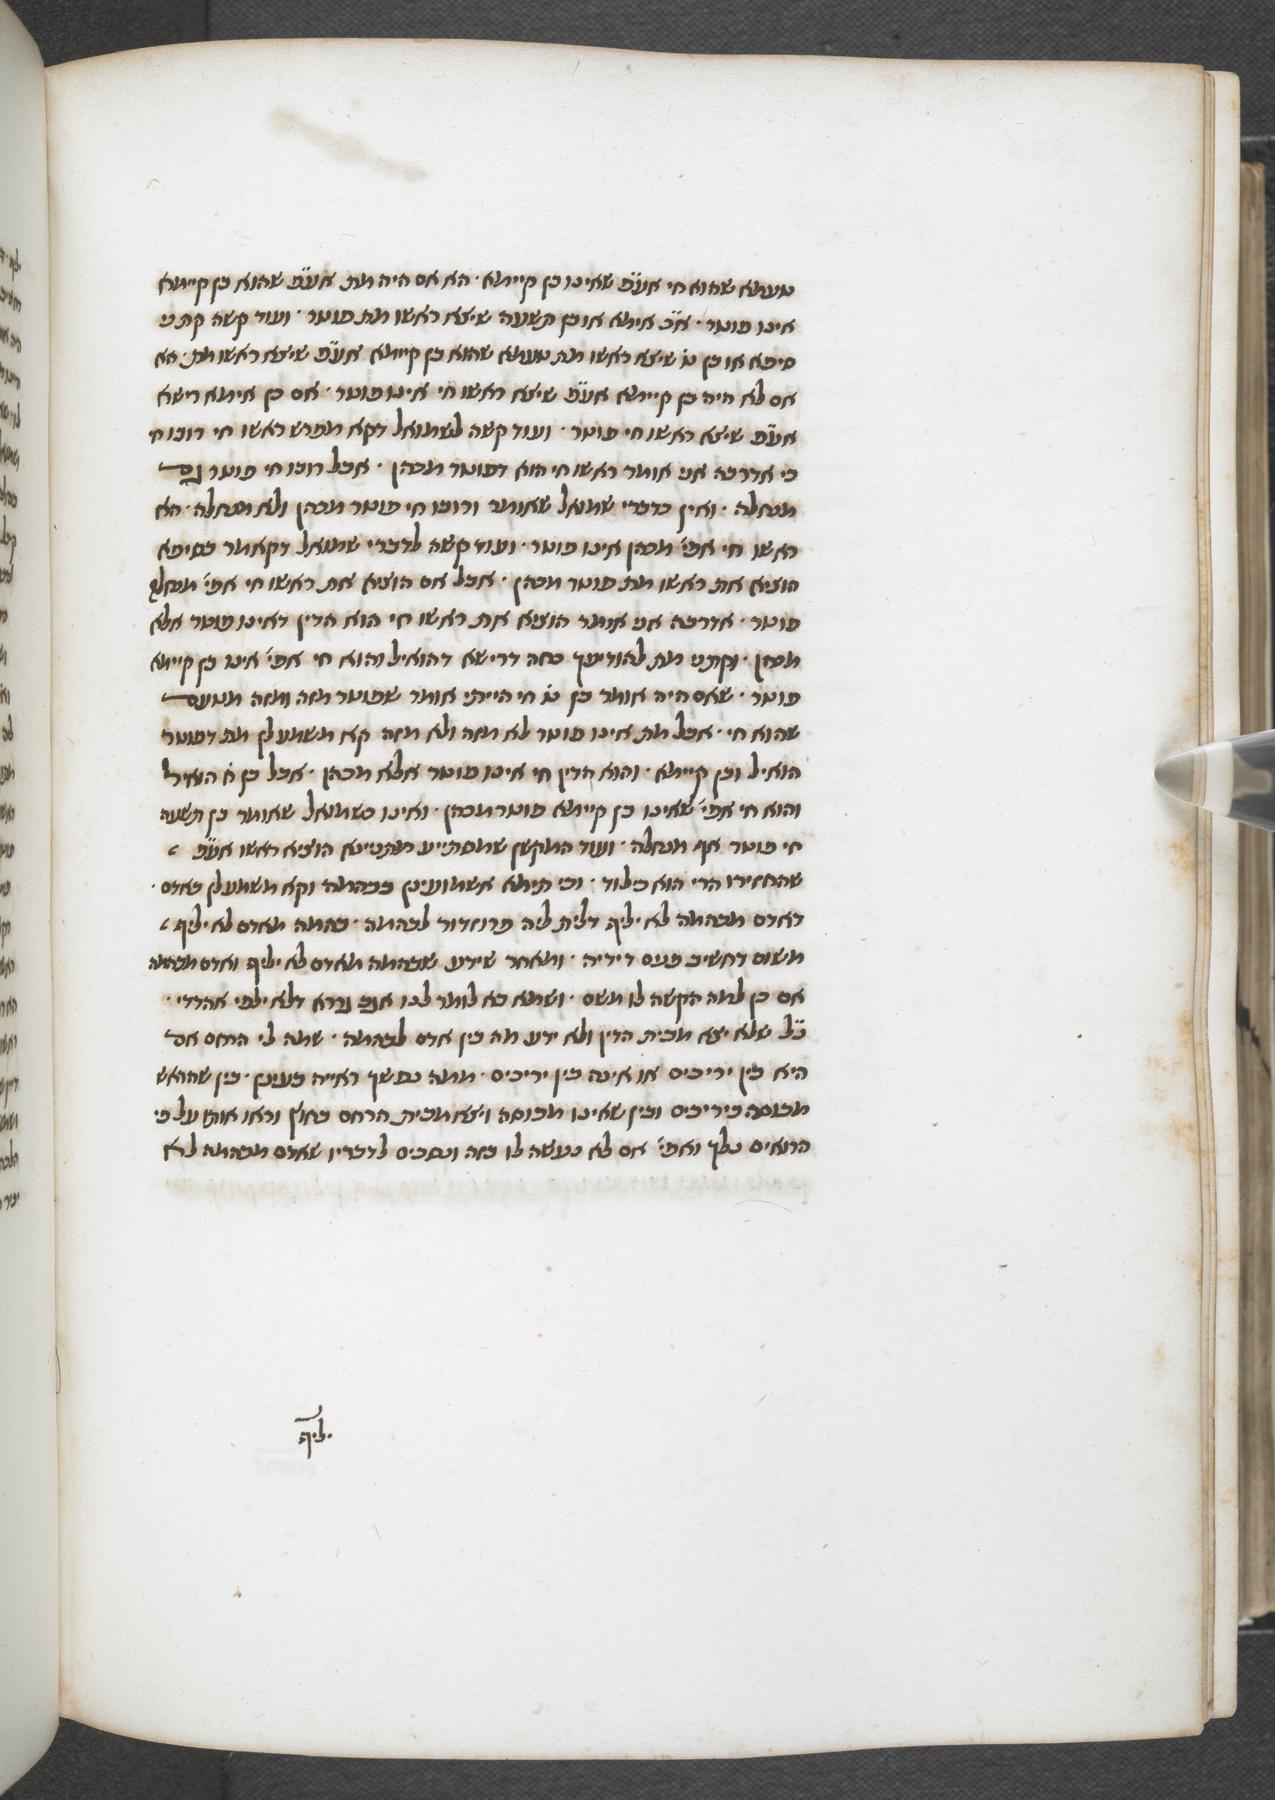 טעמא שהוא חי אע״פ שאינו בן קיימא · הא אם היה מת אע״פ שהוא בן קיימא
אינו פוטר · א״כ אימא או בן תשעה שיצא ראשו מת פוטר · ועוד קשה קתני
סיפא או בן ט׳ שיצא ראשו מת טעמא שהוא בן קיימא אע״פ שיצא ראשו מת · הא
אם לא היה בן קיימא אע״פ שיצא ראשו חי אינו פוטר · אם כן אימא רישא
אע״פ שיצא ראשו חי פוטר · ועוד קשה לשמואל דקא מפרש ראשו חי רובו חי
כי אדרבה אני אומר ראשו חי הוא דפוטר מכהן · אבל רובו חי פוטר גם
מנחלה · ואין כדברי שמואל שאומר ורובו חי פוטר מכהן ולא מנחלה · הא
ראשו חי אפי׳ מכהן אינו פוטר · ועוד קשה לדברי שמואל דקאמר בסיפא
הוציא את ראשו מת פוטר מכהן · אבל אם הוציא את ראשו חי אפי׳ מנחלה
פוטר · אדרבה אני אומר הוציא את ראשו חי הוא הדין דאינו פוטר אלא
מכהן · וקתני מת להודיעך כחה דרישא דהואיל והוא חי אפי׳ אינו בן קיימא
פוטר · שאם היה אומר בן ט׳ חי הייתי אומר שפוטר מזה ומזה מטעם
שהוא חי · אבל מת אינו פוטר לא מזה ולא מזה קא משמע לן מת דפוטר
הואיל ובן קיימא · והוא הדין חי אינו פוטר אלא מכהן · אבל בן ח׳ הואיל
והוא חי אפי׳ שאינו בן קיימא פוטר מכהן · ואינו כשמואל שאומר בן תשעה
חי פוטר אף מנחלה · ועוד המקשן שמסתייע ממתניתא הוציא ראשו אע״פ
שהחזירו הרי הוא כילוד · וכי תימא אשמועינן בבהמה וקא משמע לן באדם ·
דאדם מבהמה לא יליף דלית ליה פרוזדור לבהמה · בהמה מאדם לא יליף
משום דחשיב פנים דידיה · ומאחר שידע שבהמה מאדם לא יליף ואדם מבהמה
אם כן למה הקשה לו משם · ושמא בא לומר לנו אגב גררא דלא ילפי אהדדי ·
כ״ל שלא יצא מבית הדין ולא ידע מה בין אדם לבהמה · שמה לי הרחם אם
היא בין יריכים או אינה בין יריכים · ממה נפשך ראייה בעינן · בין שהראש
מכוסה ביריכים ובין שאינו מכוסה ויצא מבית הרחם בחוץ וראו אותו על פי
הרואים נלך ואפי׳ אם לא נעשה לו כזה ונסכים לדבריו שאדם מבהמה לא
יליף